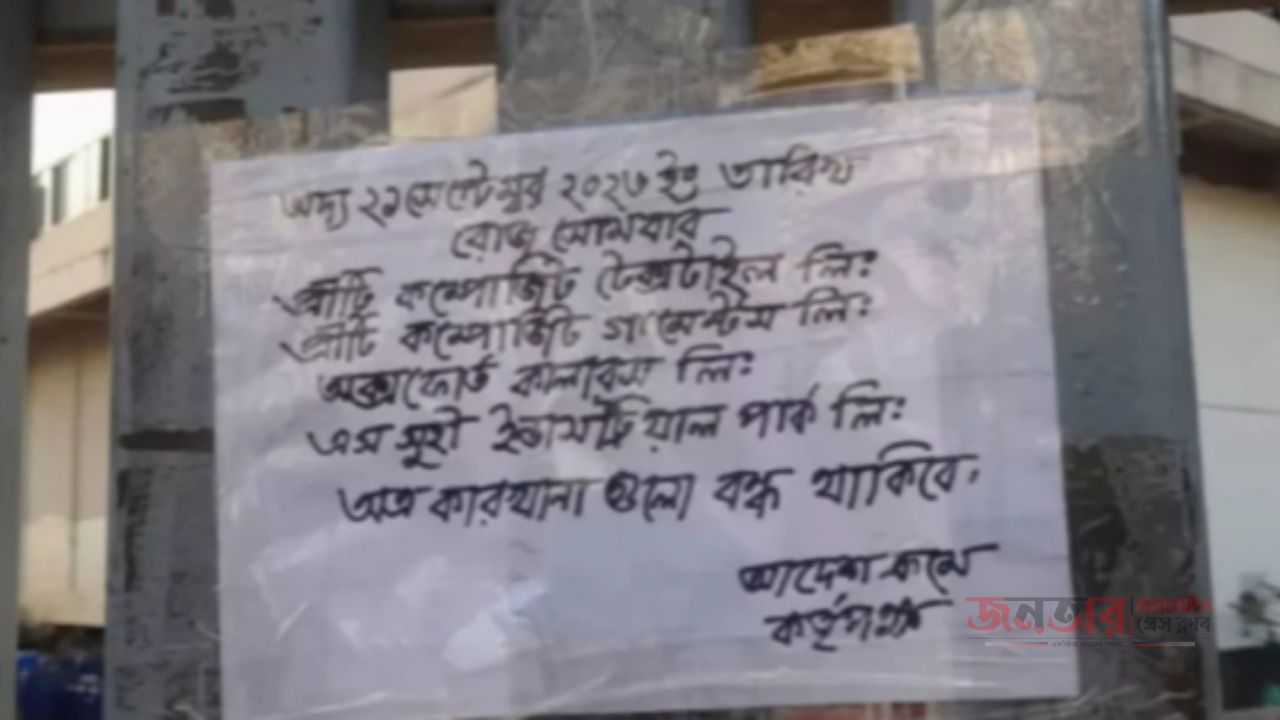 অদ্য ২১সেপ্টেম্বর ২০২৬ ইং তারিখ
রোজ সোমবার
এ্যার্টি কম্পোজিট টেক্সটাইল লিঃ
এ্যার্টি কম্পোজিট গার্মেন্টস লিঃ
অক্সফোর্ড কালারস লিঃ
এস সুহী ইন্ডাসট্রিয়াল পার্ক লিঃ
অত্র কারখানা গুলো বন্ধ থাকিবে,
আদেশ ক্রমে
কর্তৃপক্ষ
জনতার অনলাইন প্রেস ক্লাব